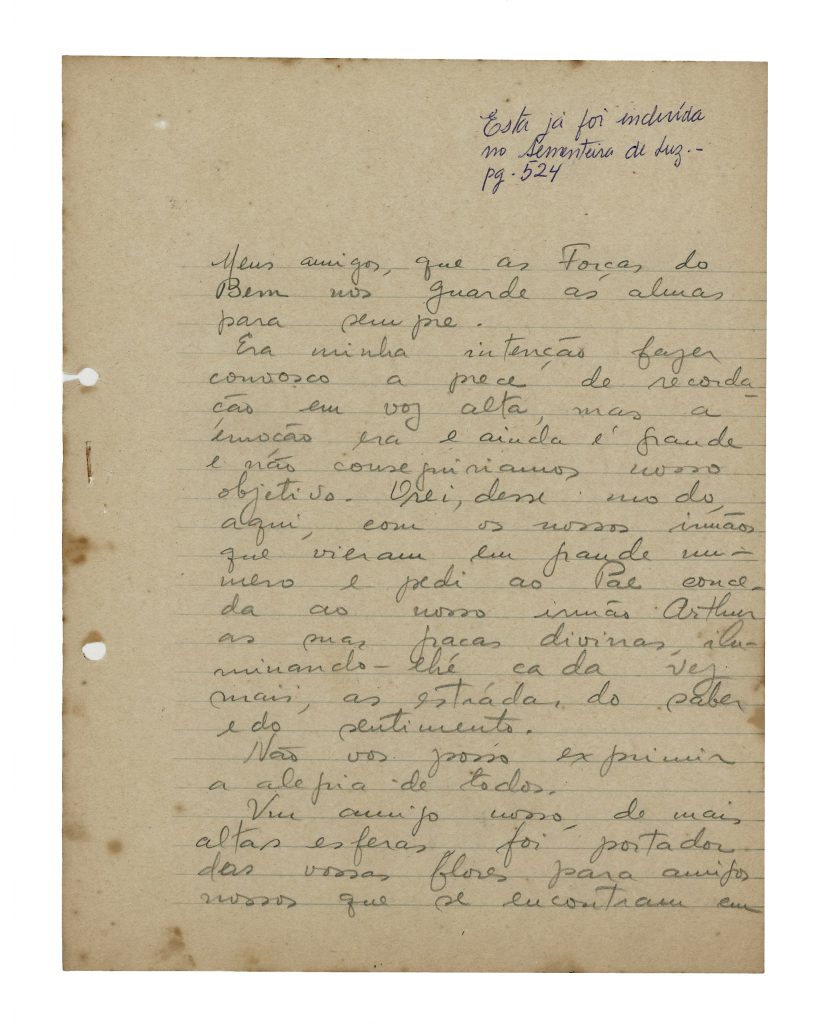 Esta já foi incluída
no Sementeira de Luz.-
pg. 524
Meus amigos, que as Forças do
Bem nos guarde as almas
para sempre.
Era minha intenção fazer
convosco a prece de recorda-
ção em voz alta, mas a
emoção era e ainda é grande
e não conseguiriamos nosso
objetivo. Orei, desse modo,
aqui, com os nossos irmãos
que vieram em grande nu-
mero e pedi ao Pae conce-
da ao nosso irmão Arthur
as suas graças divinas, ilu-
minando-lhe cada vez
mais, as estradas do saber
e do sentimento.
Não vos posso exprimir
a alegria de todos.
Um amigo nosso, de mais
altas esferas, foi portador
das vossas flores para amigos
nossos que se encontram em